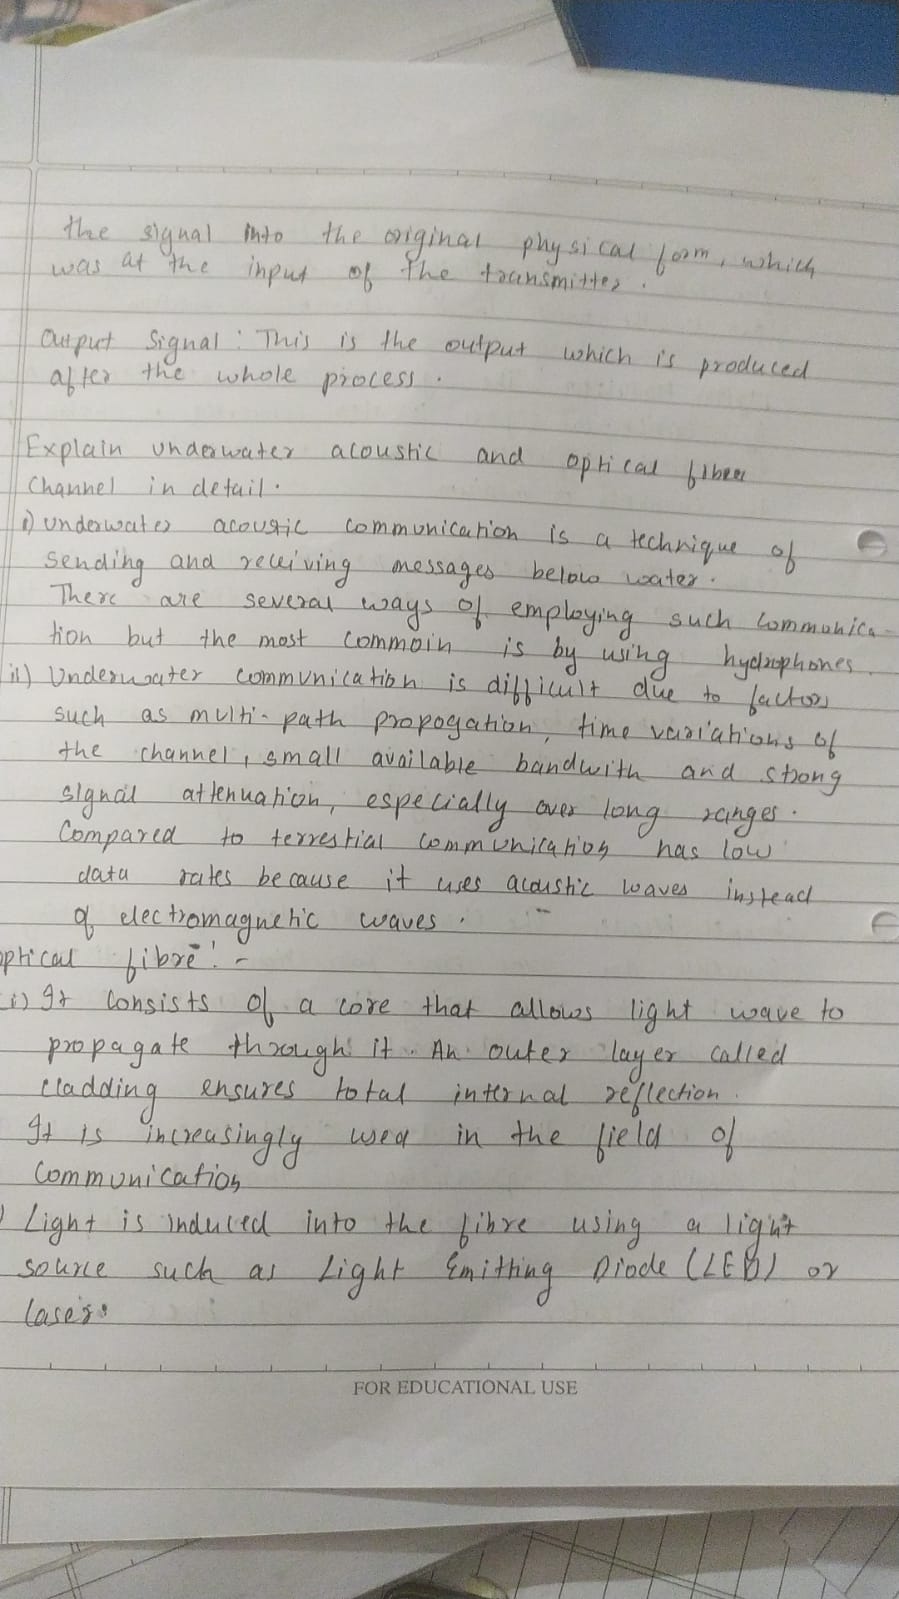 the signal into the original physical form, which
was at the input of the transmitter.
Output Signal: This is the output which is produced
after the whole process.
Explain underwater acoustic and optical fiber
Channel in detail.
i) Underwater acoustic communication is a technique of
sending and receiving messages below water.
There are several ways of employing such communica-
tion but the most commoin is by using hydrophones.
ii) Underwater communication is difficult due to factors
such as multi-path propogation, time variations of
the channel, small available bandwith and strong
signal attenuation, especially over long ranges.
Compared to terrestial communication has low
data rates because it uses acoustic waves instead
of electromagnetic waves.
optical fibre:-
i) It consists of a core that allows light wave to
propagate through it. An outer layer called
cladding ensures total internal reflection.
It is increasingly used in the field of
Communication
) Light is induced into the fibre using a light
source such as Light Emitting Diode (LED) or
lasers.
FOR EDUCATIONAL USE